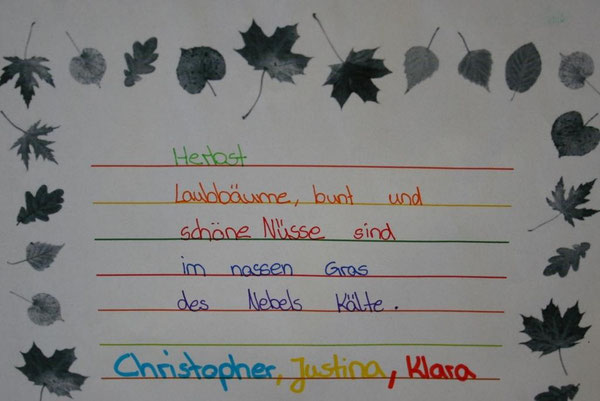 Herbst
Laubbäume, bunt und
schöne Nüsse sind
im nassen Gras
des Nebels Kälte.
Christopher, Justina, Klara